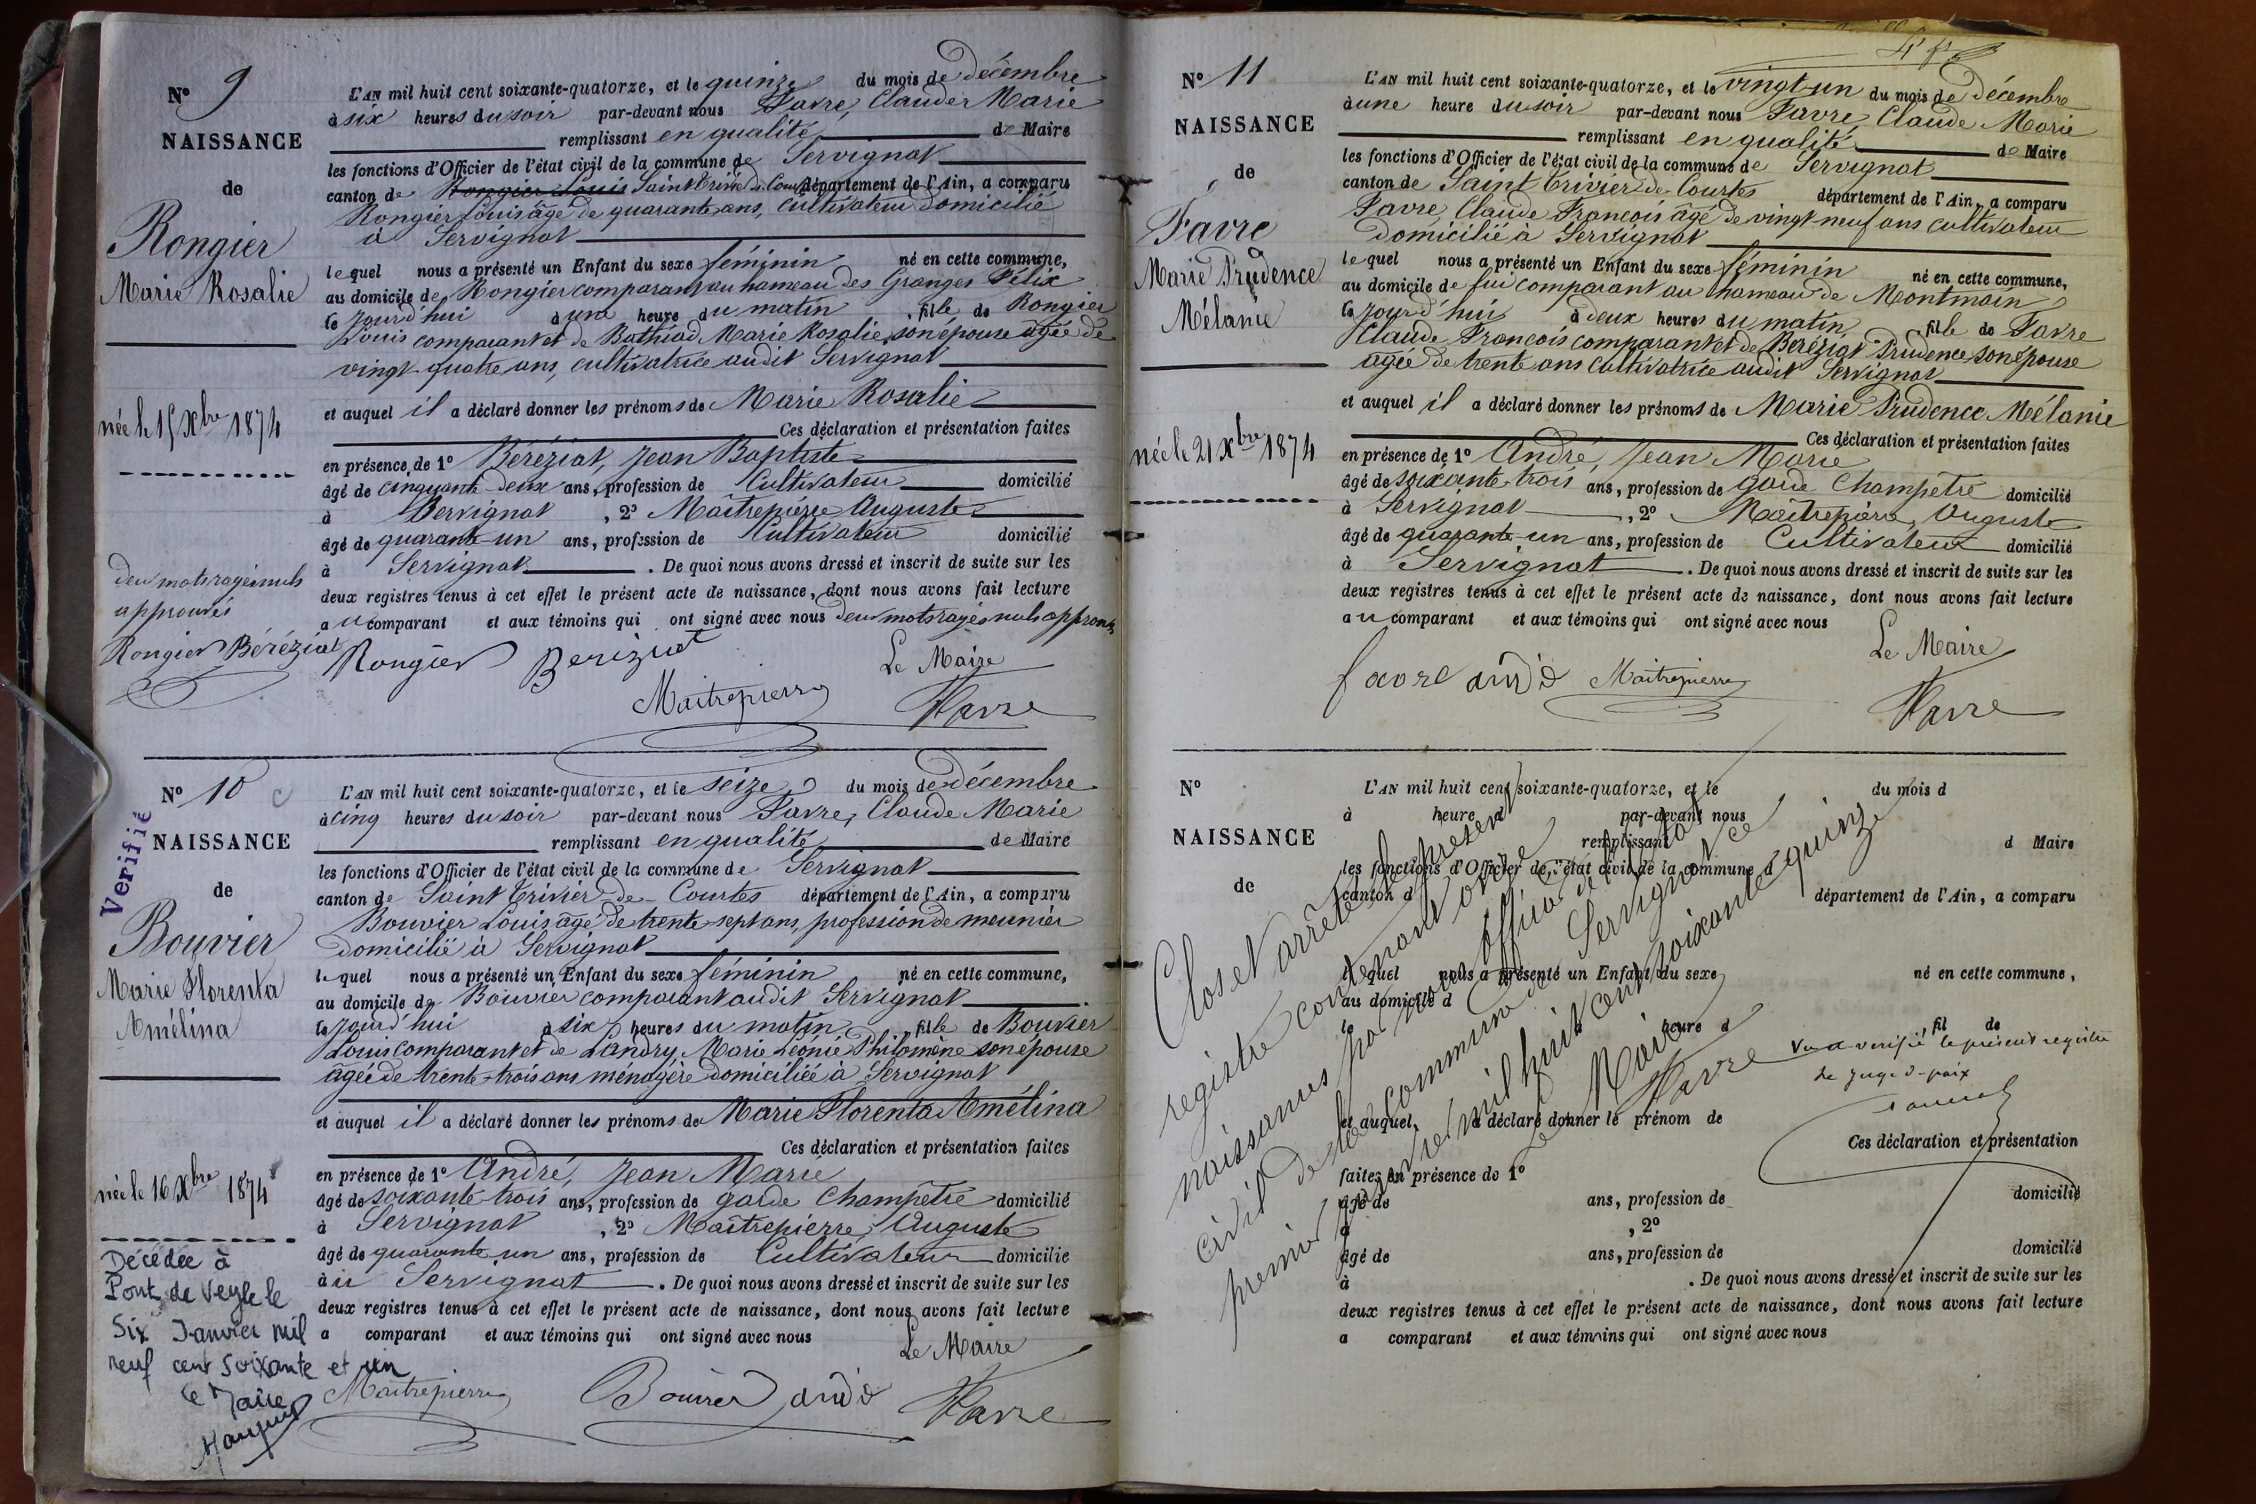 N° 9
NAISSANCE
de
Rongier
Marie Rosalie
née le 15 Xbre 1874
deux mots rayés nuls
approuvés
Rongier Béréziat
L'AN mil huit cent soixante-quatorze, et le quinze du mois de décembre
à six heures du soir par-devant nous Favre, Claude Marie
remplissant en qualité de Maire
les fonctions d'Officier de l'état civil de la commune de Servignat
canton de Rongier Louis Saint Trivier de Courtes département de l'Ain, a comparu
Rongier Louis âgé de quarante ans, cultivateur domicilié
à Servignat
lequel nous a présenté un Enfant du sexe féminin né en cette commune,
au domicile de Rongier comparant au hameau des Granges Félix
le jourd'hui à une heure du matin, fille de Rongier
Louis comparant et de Bathiad Marie Rosalie, son épouse âgée de
vingt-quatre ans, cultivatrice audit Servignat
et auquel il a déclaré donner les prénoms de Marie Rosalie
Ces déclaration et présentation faites
en présence de 1° Béréziat, Jean Baptiste
âgé de cinquante-deux ans, profession de Cultivateur domicilié
à Servignat, 2° Maîtrepierre Auguste
âgé de quarante-un ans, profession de Cultivateur domicilié
à Servignat. De quoi nous avons dressé et inscrit de suite sur les
deux registres tenus à cet effet le présent acte de naissance, dont nous avons fait lecture
au comparant et aux témoins qui ont signé avec nous deux mots rayés nuls approuvés
Rongier Béréziat Le Maire
Maitrepierre Favre
N° 10
Verifié
NAISSANCE
de
Bouvier
Marie Florenta
Amélina
née le 16 Xbre 1874
Décédée à
Pont de Veyle le
Six Janvier mil
neuf cent soixante et un
le Maire
L'AN mil huit cent soixante-quatorze, et le seize du mois de décembre
à cinq heures du soir par-devant nous Favre, Claude Marie
remplissant en qualité de Maire
les fonctions d'Officier de l'état civil de la commune de Servignat
canton de Saint Trivier de Courtes département de l'Ain, a comparu
Bouvier Louis âgé de trente-sept ans, profession de meunier
domicilié à Servignat
lequel nous a présenté un Enfant du sexe féminin né en cette commune,
au domicile de Bouvier comparant audit Servignat
le jourd'hui à six heures du matin, fille de Bouvier
Louis comparant et de Landry Marie Léonie Philomène son épouse
âgée de trente-trois ans ménagère domiciliée à Servignat
et auquel il a déclaré donner les prénoms de Marie Florenta Amélina
Ces déclaration et présentation faites
en présence de 1° André, Jean Marie
âgé de soixante-trois ans, profession de garde Champêtre domicilié
à Servignat, 2° Maîtrepierre, Auguste
âgé de quarante-un ans, profession de Cultivateur domicilié
à Servignat. De quoi nous avons dressé et inscrit de suite sur les
deux registres tenus à cet effet le présent acte de naissance, dont nous avons fait lecture
a comparant et aux témoins qui ont signé avec nous
Le Maire
Maitrepierre Bouvier andré Favre
N° 11
NAISSANCE
de
Favre
Marie Prudence
Mélanie
née le 21 Xbre 1874
L'AN mil huit cent soixante-quatorze, et le vingt-un du mois de décembre
à une heure du soir par-devant nous Favre, Claude Marie
remplissant en qualité de Maire
les fonctions d'Officier de l'état civil de la commune de Servignat
canton de Saint Trivier de Courtes département de l'Ain, a comparu
Favre, Claude François âgé de vingt-neuf ans cultivateur
domicilié à Servignat
lequel nous a présenté un Enfant du sexe féminin né en cette commune,
au domicile de lui comparant au hameau de Montmain
le jourd'hui à deux heures du matin, fille de Favre
Claude François comparant et de Beréziat Prudence son épouse
âgée de trente ans cultivatrice audit Servignat
et auquel il a déclaré donner les prénoms de Marie Prudence Mélanie
Ces déclaration et présentation faites
en présence de 1° André, Jean Marie
âgé de soixante-trois ans, profession de garde Champêtre domicilié
à Servignat, 2° Maîtrepierre, Auguste
âgé de quarante-un ans, profession de Cultivateur domicilié
à Servignat. De quoi nous avons dressé et inscrit de suite sur les
deux registres tenus à cet effet le présent acte de naissance, dont nous avons fait lecture
au comparant et aux témoins qui ont signé avec nous
Le Maire
favre andré Maitrepierre
Favre
N°
NAISSANCE
de
L'AN mil huit cent soixante-quatorze, et le du mois d
à heure d par-devant nous
remplissant d Maire
les fonctions d'Officier de l'état civil de la commune d
canton d département de l'Ain, a comparu
lequel nous a présenté un Enfant du sexe né en cette commune,
au domicile d
le heure d fil de
et auquel a déclaré donner le prénom de
Ces déclaration et présentation
faites en présence de 1°
âgé de ans, profession de domicilié
à , 2°
âgé de ans, profession de domicilié
à . De quoi nous avons dressé et inscrit de suite sur les
deux registres tenus à cet effet le présent acte de naissance, dont nous avons fait lecture
a comparant et aux témoins qui ont signé avec nous
Clos et arrêté le présent
registre contenant onze
naissances par nous officier de l'état
civil de la commune de Servignat ce
premier janvier mil huit cent soixante quinze
Le Maire
Favre
Vu et verifié le présent registre
le juge de paix